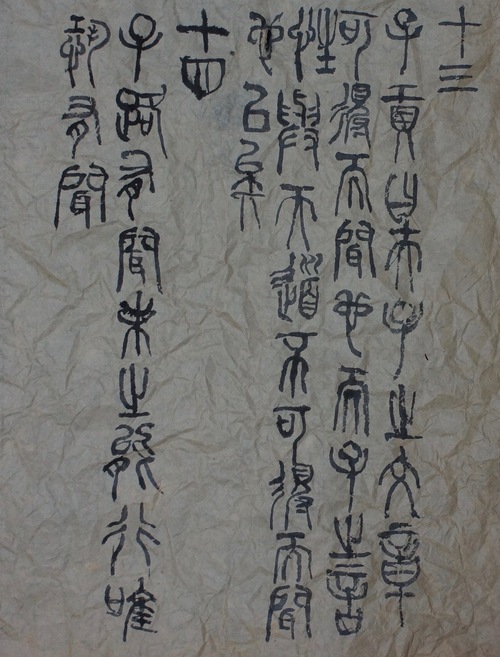 十三
子貢曰夫子之文章
可得而聞也夫子之言
性與天道不可得而聞
也已矣
十四
子路有聞未之能行唯
恐有聞